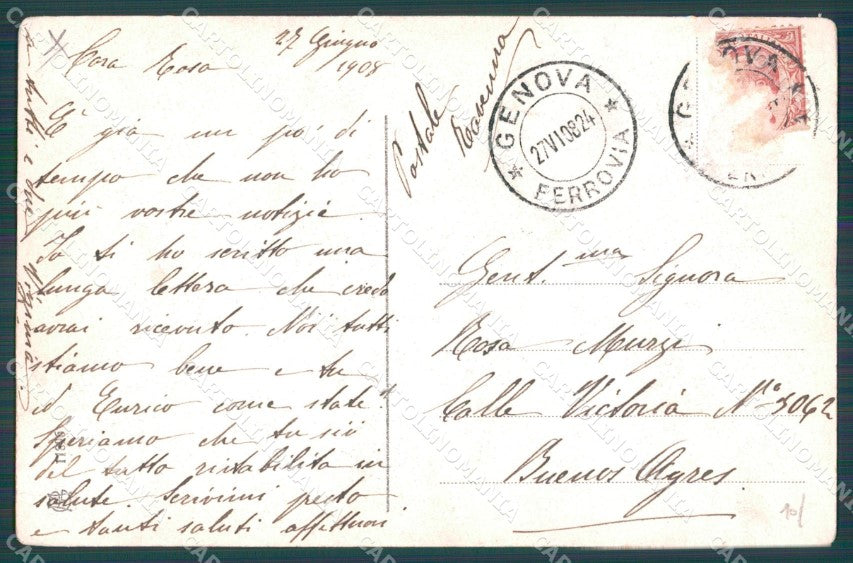 27 Giugno
1908
Cara Rosa
È già un po' di
tempo che non ho
più vostre notizie.
Io ti ho scritto una
lunga lettera che credo
avrai ricevuto. Noi tutti
stiamo bene e tu
ed Enrico come state?
Speriamo che tu sii
del tutto ristabilita in
salute. Scrivimi presto
e tanti saluti affettuosi
a tutti e due
Postale
Ravenna
GENOVA
27 VI 08 24
FERROVIA
Gent.ma Signora
Rosa Murzi
Calle Victoria No 3062
Buenos Ayres.
10/
CARTOLINOMANIA